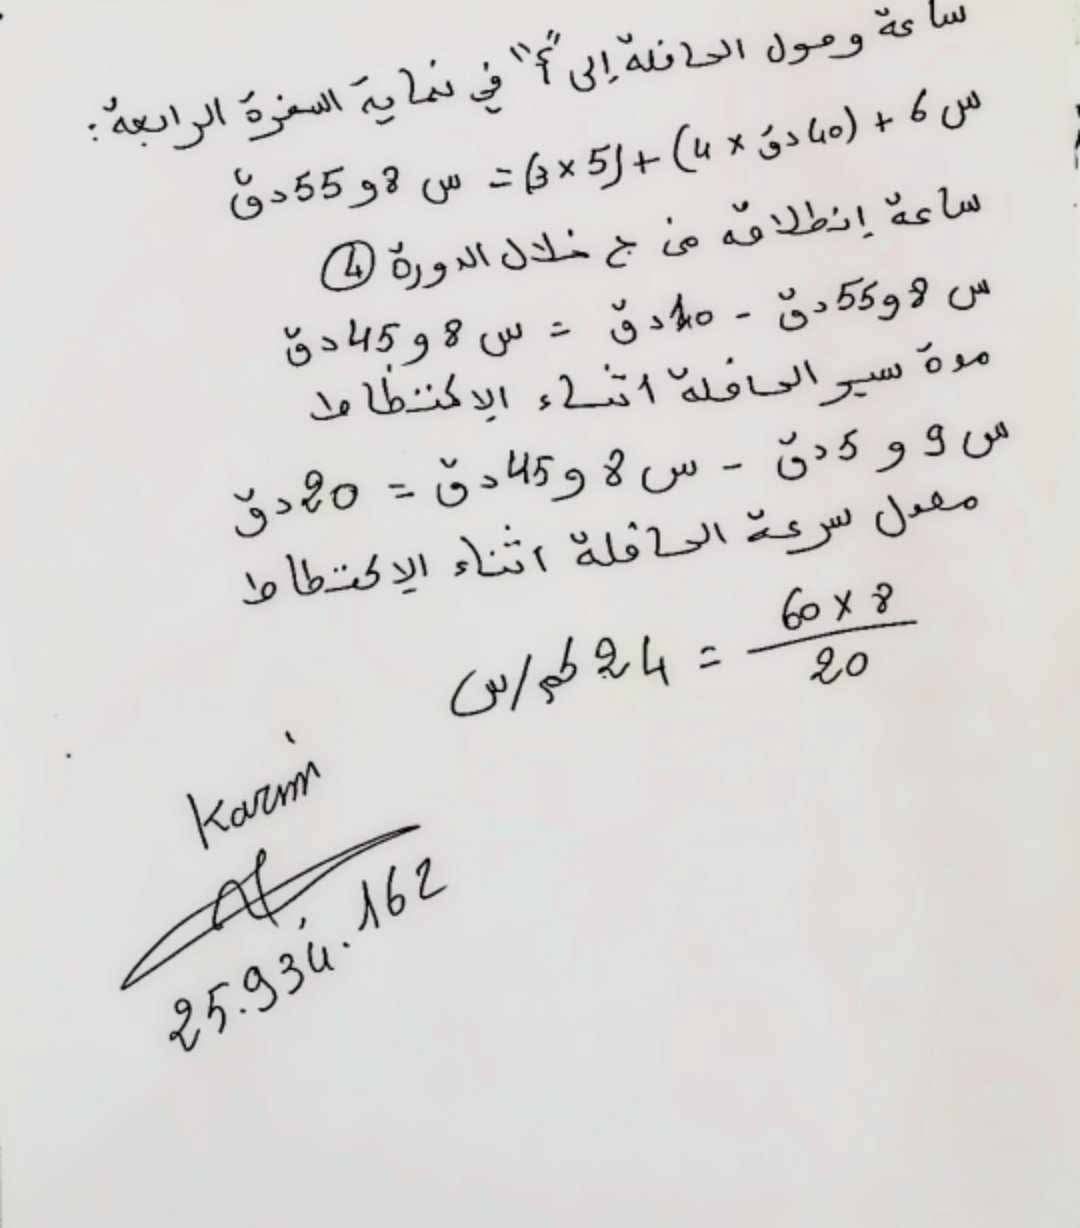 ساعة وصول الحافلة إلى "أ" في نهاية السفرة الرابعة:
س 6 + (40دق × 4) + (5 × 3) = س 8 و 55دق
ساعة إنطلاقه من ج خلال الدورة 4
س 8 و 55دق - 10دق = س 8 و 45دق
مدة سير الحافلة اثناء الإكتظاظ
س 9 و 5دق - س 8 و 45دق = 20دق
معدل سرعة الحافلة اثناء الإكتظاظ
60 × 8 / 20 = 24 كم/س
Karim
25.934.162